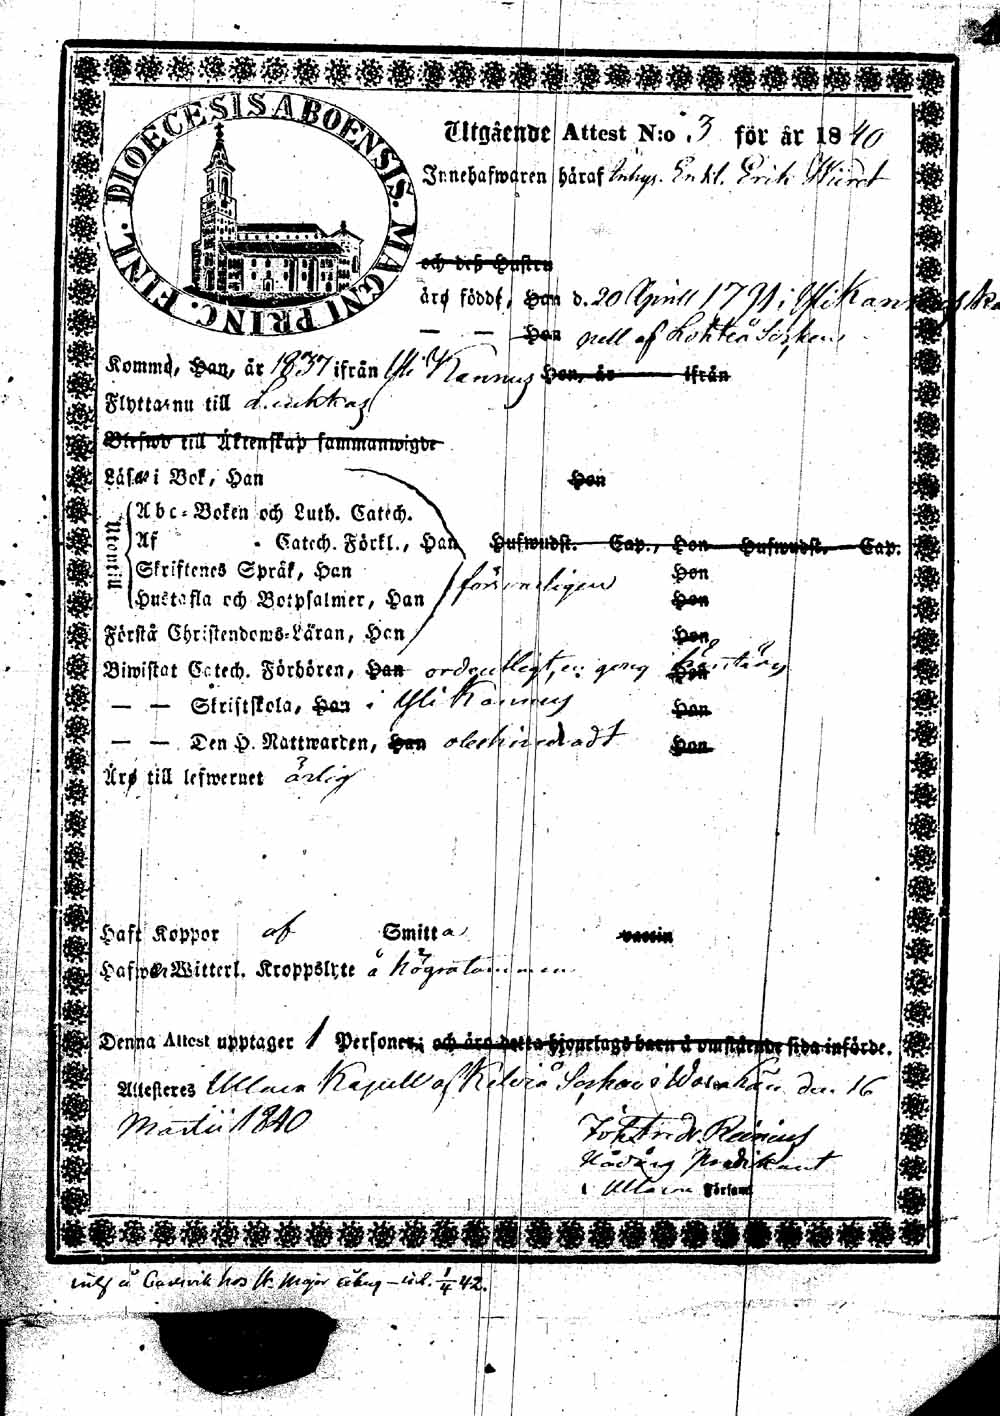 DIOECESIS ABOENSIS. MAGNI PRINC. FINL.
Utgående Attest N:o 3 för år 1840
Innehafwaren häraf Inhys. Enkl. Erik
och deß Hustru
äro födde, Han d. 20 April 1791 i Yli Kannus
— — Hon nell af Lohteå Socken
Komme, Han, år 1837 ifrån Yli Kannus Hon, år ifrån
Flytta nu till Luukkas
Blefwo till Äktenskap sammanwigde
Läsa i Bok, Han Hon
Utantill
Abc-Boken och Luth. Catech.
Af Catech. Förkl., Han Hufwudst. Cap., Hon Hufwudst. Cap.
Skriftenes Språk, Han försvarligen Hon
Hustafla och Botpsalmer, Han Hon
Förstå Christendoms-Läran, Han Hon
Biwistat Catech. Förhören, Han ordentligt, en gång Hon
— — Skriftskola, Han i Yli Kannus Hon
— — Den H. Nattwarden, Han obehindradt Hon
Äro till lefwernet ärlig
Haft Koppor af Smitta vaccin
Hafwa Witterl. Kroppslyte å högra tummen
Denna Attest upptager 1 Personer; och äro detta hjonelags barn å omstående sida införde.
Attesteres Ullava Kapell af Kelviå Socken i Wasa Län den 16
Martii 1840
Joh. Fredr. Reinius
Nådårs Predikant
i Ullava Församl.
hos Hr Major 1/4 42.